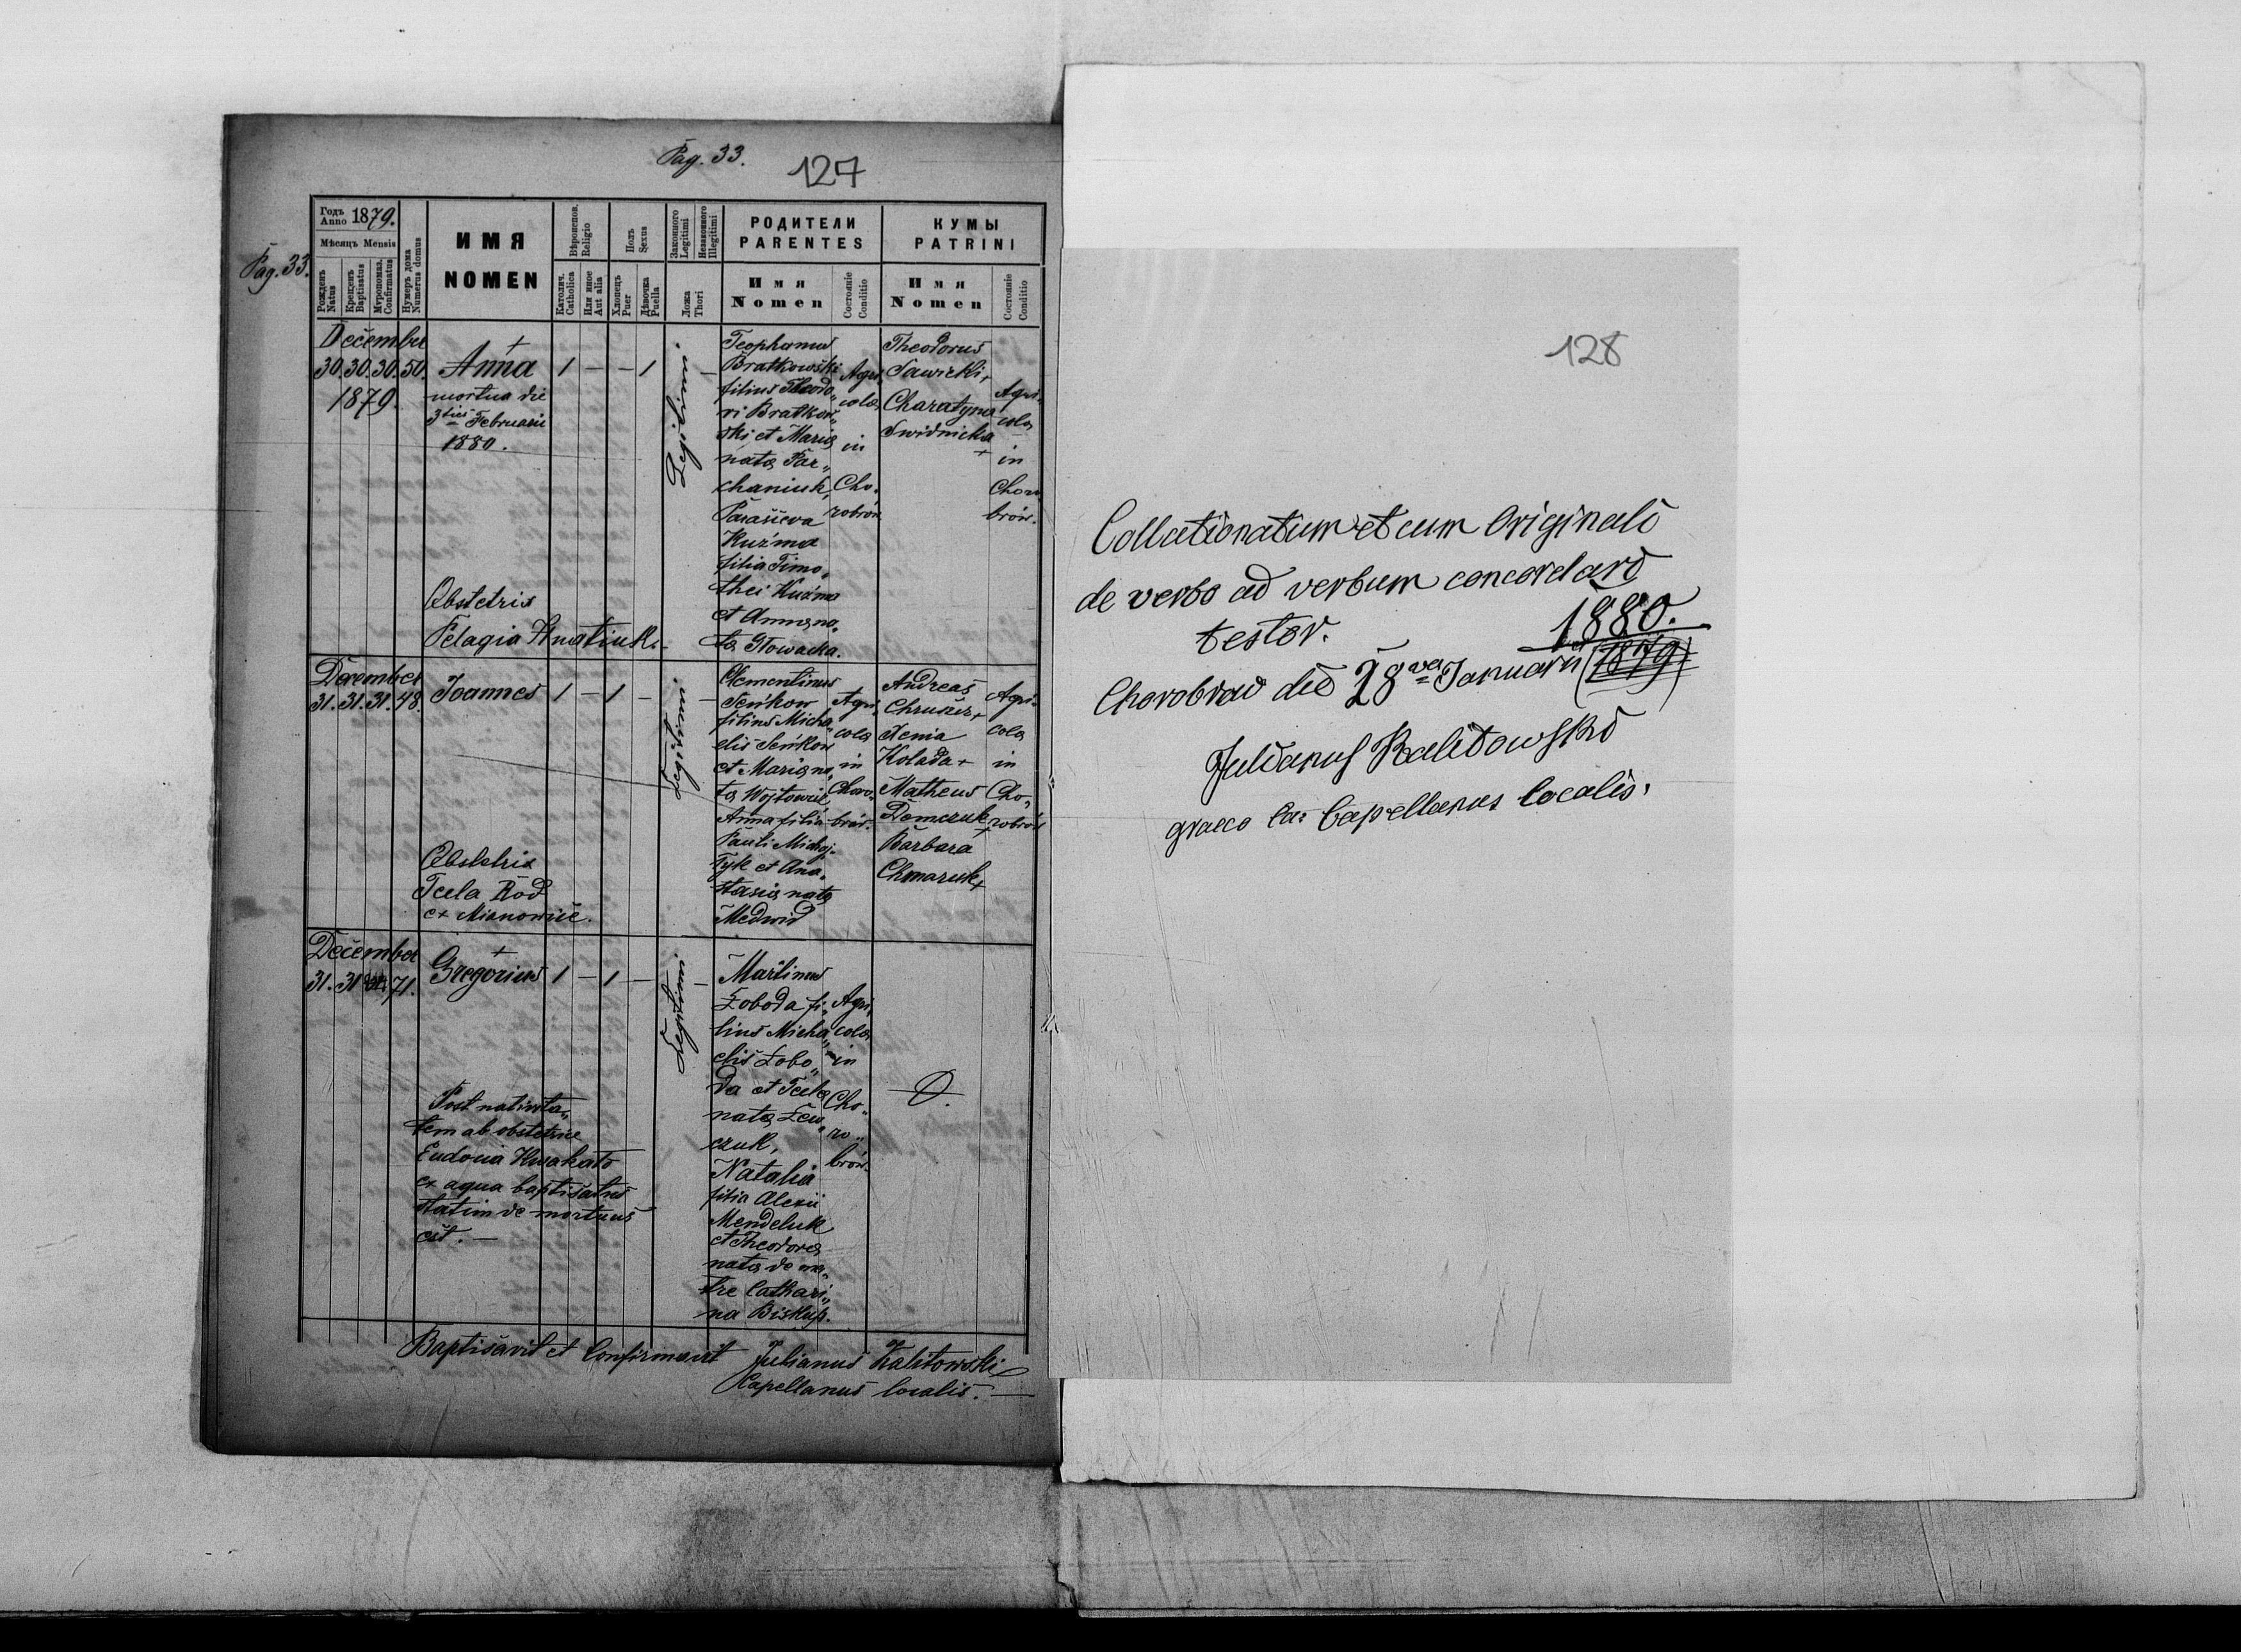 Pag. 33.
127
Pag. 33.
Годъ Anno 1879.
Мѣсяцъ Mensis
Рожденъ Natus
Крещенъ Baptisatus
Мѵропомаз. Confirmatus
Нумеръ дома Numerus domus
ИМЯ
NOMEN
Вѣроиспов. Religio
Католич. Catholica
Или иное Aut alia
Полъ Sexus
Хлопецъ Puer
Дѣвочка Puella
Законного Legitimi
Незаконного Illegitimi
Ложа Thori
РОДИТЕЛИ
PARENTES
Имя
Nomen
Состояніе Conditio
КУМЫ
PATRINI
Имя
Nomen
Состояніе Conditio
December
30. 30. 30. 50.
1879.
+
Anna
mortua die
3tia Februarii
1880.
Obstetrix
Pelagia Hnatiuk.
1 – – 1
Legitimi
Teophanus
Bratkowski
filius Theodo„
ri Bratkow„
ski et Maria
nata Par„
chaniuk,
Parasceva
Kuźma
filia Timo„
thei Kuźma
et Anna na„
ta Głowacka.
Agri„
cola
in
Cho„
robrów
Theodorus
Sawicki +
Charatyna
Swidnicka
+
Agri„
cola
in
Choro„
brów.
December
31. 31. 31. 48.
Joannes
1 – 1 –
Legitimi
Obstetrix
Tecla Rod
ex Mianowice.
Clementinus
Seńkow
filius Micha„
elis Seńkow
et Maria na„
ta Wojtowicz
Anna filia
Pauli Michaj„
łyk et Ana„
stasia nata
Medwid
Agri„
cola
in
Choro„
brów.
Andreas
Chruszcz +
Xenia
Kolada +
Matheus
Demczuk
+
Barbara
Chmaruk +
Agri„
cola
in
Cho„
robrów
December
31. 31 71.
+
Gregorius
1 – 1 –
Legitimi
Post nativita„
tem ab obstetrice
Eudoxia Hwakato
ex aqua baptisatus
statim de mortuus
est. —
Martinus
Łoboda fi„
lius Micha„
elis Łobo„
da et Tecla
nata Lew„
czuk,
Natalia
filia Alexii
Mendeluk
et Theodora
nata de ma„
tre Cathari„
na Biskup.
Agri„
cola
in
Cho„
ro„
brów.
Baptisavit et Confirmavit Julianus Kalitowski
Capellanus localis. —
128
Collationatum et cum Originali
de verbo ad verbum concordare
testor.
1880.
Chorobrow die 28va Januarii (1879)
Julianus Kalitowski
graeco ca: Capellanus localis.